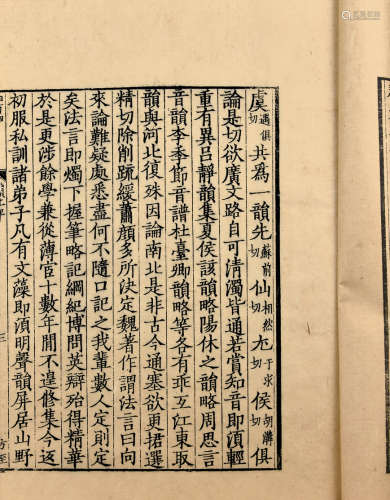 虞遇俱切共為一韻先蘇前切仙相然切尤于求切侯胡溝切俱
論是切欲廣文路自可清濁皆通若賞知音即須輕
重有異呂靜韻集夏侯該韻略陽休之韻略周思言
音韻李季節音譜杜臺卿韻略等各有乖互江東取
韻與河北復殊因論南北是非古今通塞欲更捃選
精切除削疏緩蕭顏多所決定魏著作謂法言曰向
來論難疑處悉盡何不隨口記之我輩數人定則定
矣法言即燭下握筆略記綱紀博問英辯殆得精華
於是更涉餘學兼從薄宦十數年閒不遑修集今返
初服私訓諸弟子凡有文藻即須明聲韻屏居山野
三